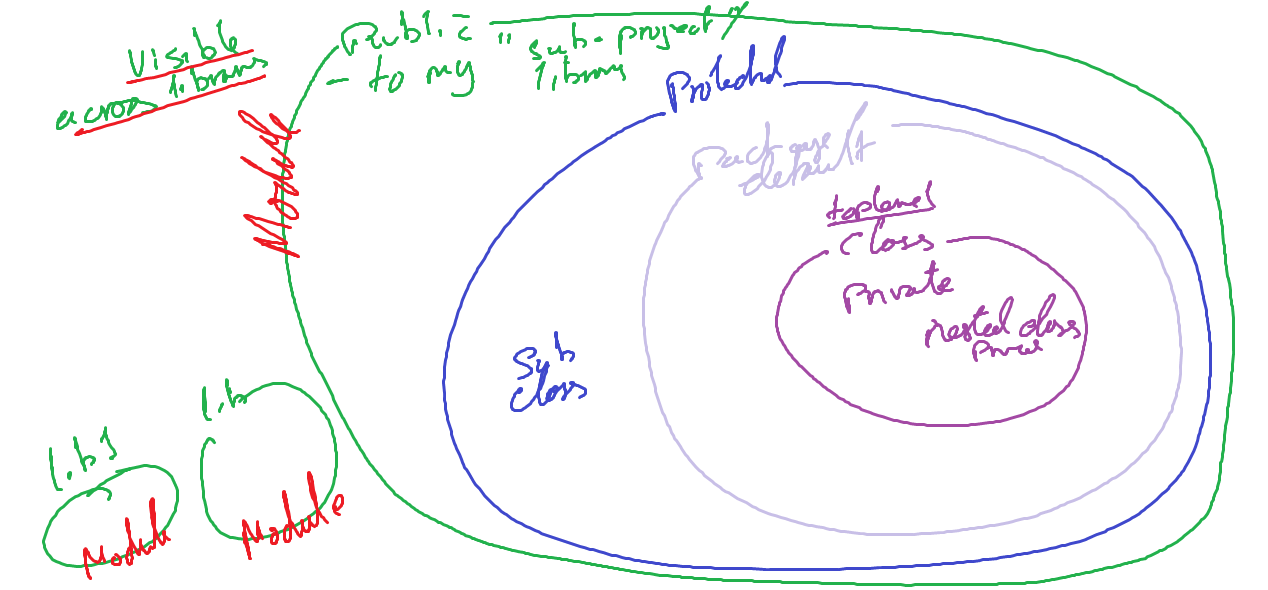 Visible
across libraries
Public "sub-project"
- to my library
Module
Protected
Package
default
toplevel
class
private
nested class
Sub
class
lib
lib1
Module
Module